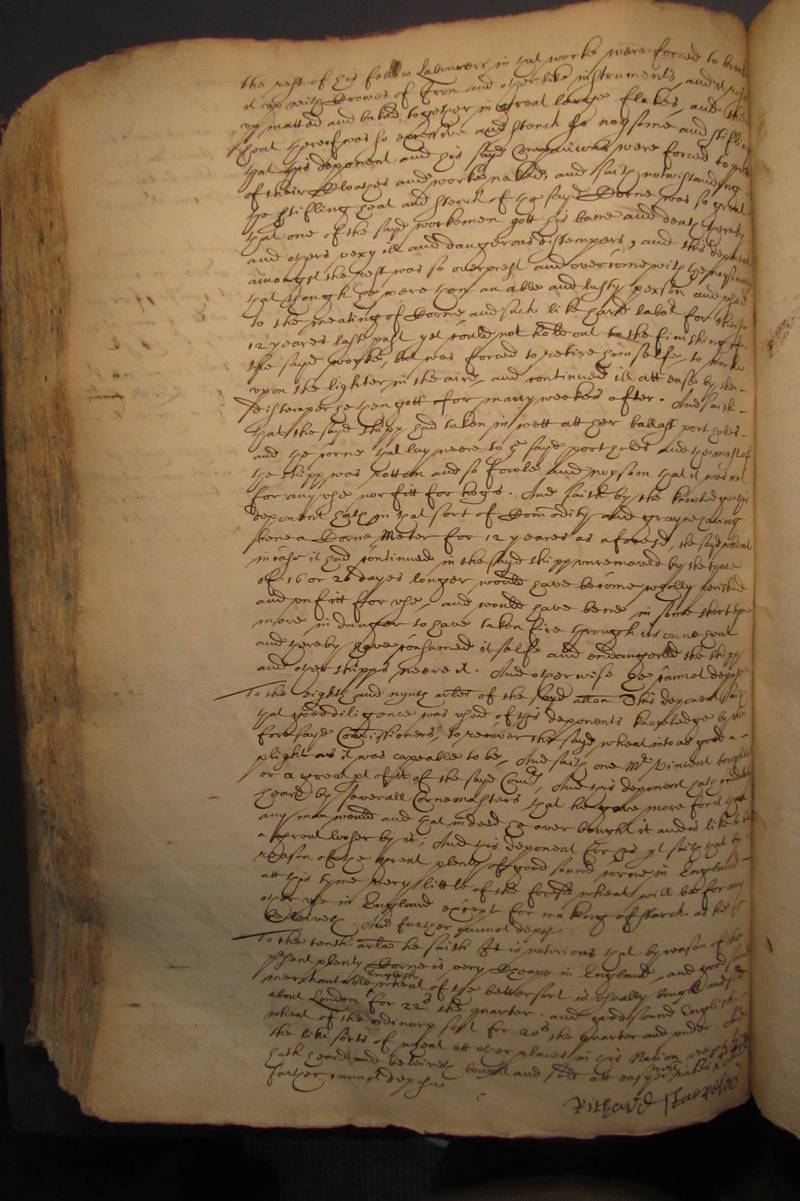 the rest of his fellow labourers in that worke were forced to breake
it up with Crowes of Iron and other like instruments, and it
matted and baked together in great large flakes, and the
heat thereof was so excessive and stench so noysome and stifling
that this deponent and his sayd Companions were forced to
of their Cloathes and worke naked, and saith notwithstanding
the stifling heat and stench of the sayd Corne was so great
that one of the sayd workemen gott his bane and death thereby
and others very ill and dangerous distempers, and this deponent
amongst the rest was so overprest and overcome with the
that though he were then an able and lusty person and used
to the meating of Corne and such like hard labor for theise
12 yeares last past yet could not hold out to the finishing of
the sayd worke, but was forced to retire himselfe to worke
upon the lighter in the aire, and continued ill att ease by the
distemper he then gott for many weekes after. And saith
that the sayd shipp had taken in wett att her ballast port holes
and the corne that lay neere to the sayd port holes and the mast of
the shipp was rotten and so fowle and noysom that it was not
for any use nor fitt for hogs. And saith by the knowledge this
deponent hath in that sort of Commodity and grayne having
bene a Corne Meter for 12 yeares as aforesd, the sayd wheat
in case it had continued in the sayd shipp unremoved by the space
of 16 or 20 dayes longer would have become wholly perished
and unfitt for use, and would have bene in some short tyme
more in danger to have taken fire through its owne heat
and thereby have consumed it selfe and endangered the shipp
and other shipps neere it. And otherwise hee cannot depose
To the eighth and nynth arles of the sayd allon This deponent saith
that good diligence was used of this deponents knowledge by the
fore sayd Comissioners, to recover the sayd wheat into as good a
plight as it was capeable to be, And saith one Mr Vincent bought
or a great pt of it of the sayd Comrs, And this deponent hath
heard by severall Cornemasters that he gave more for it than
any man would and that indeed he over bought it and is like to be
a great looser by it, And this deponent for his pt saith that by
reason of the great plenty of good sound corne in England
att this tyme very little of the foresd wheat will bee for any
other use in England except for making of starch as he
beleiveth. And further cannot depose
To the tenth arle he saith It is notorious that by reason of the
present plenty Corne is very cheape in England, and good sound
merchantable English wheat of the better sort is usually bought and sold
about London for 22s the quarter. and good sound English
wheat of the ordinary sort for 20s the quarter and under. And
the like sorts of wheat att other places in this Nation
hath heard and beleiveth bought and sold att easyer rates
further cannot depose
Richard